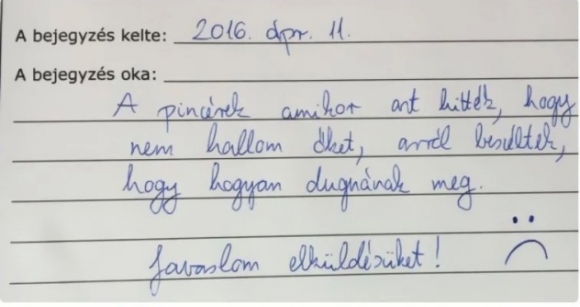 A bejegyzés kelte: 2016. ápr. 11.
A bejegyzés oka:
A pincérek amikor azt hitték, hogy
nem hallom őket, arról beszéltek,
hogy hogyan dugnának meg.
Javaslom elküldésüket!